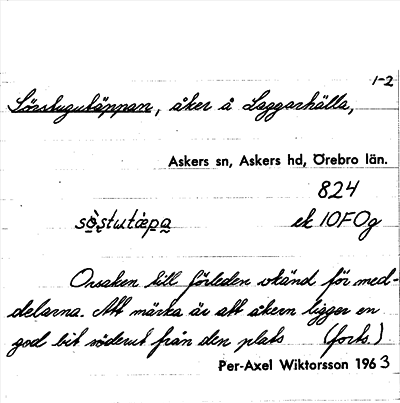 1-2
Sörstugutäppan, åker å Laggarhälla,
Askers sn, Askers hd, Örebro län.
824
sò̤ştutæpa̤ ek 10F0g
Orsaken till förleden okänd för med-
delarna. Att märka är att åkern ligger en
god bit söderut från den plats (forts.)
Per-Axel Wiktorsson 1963